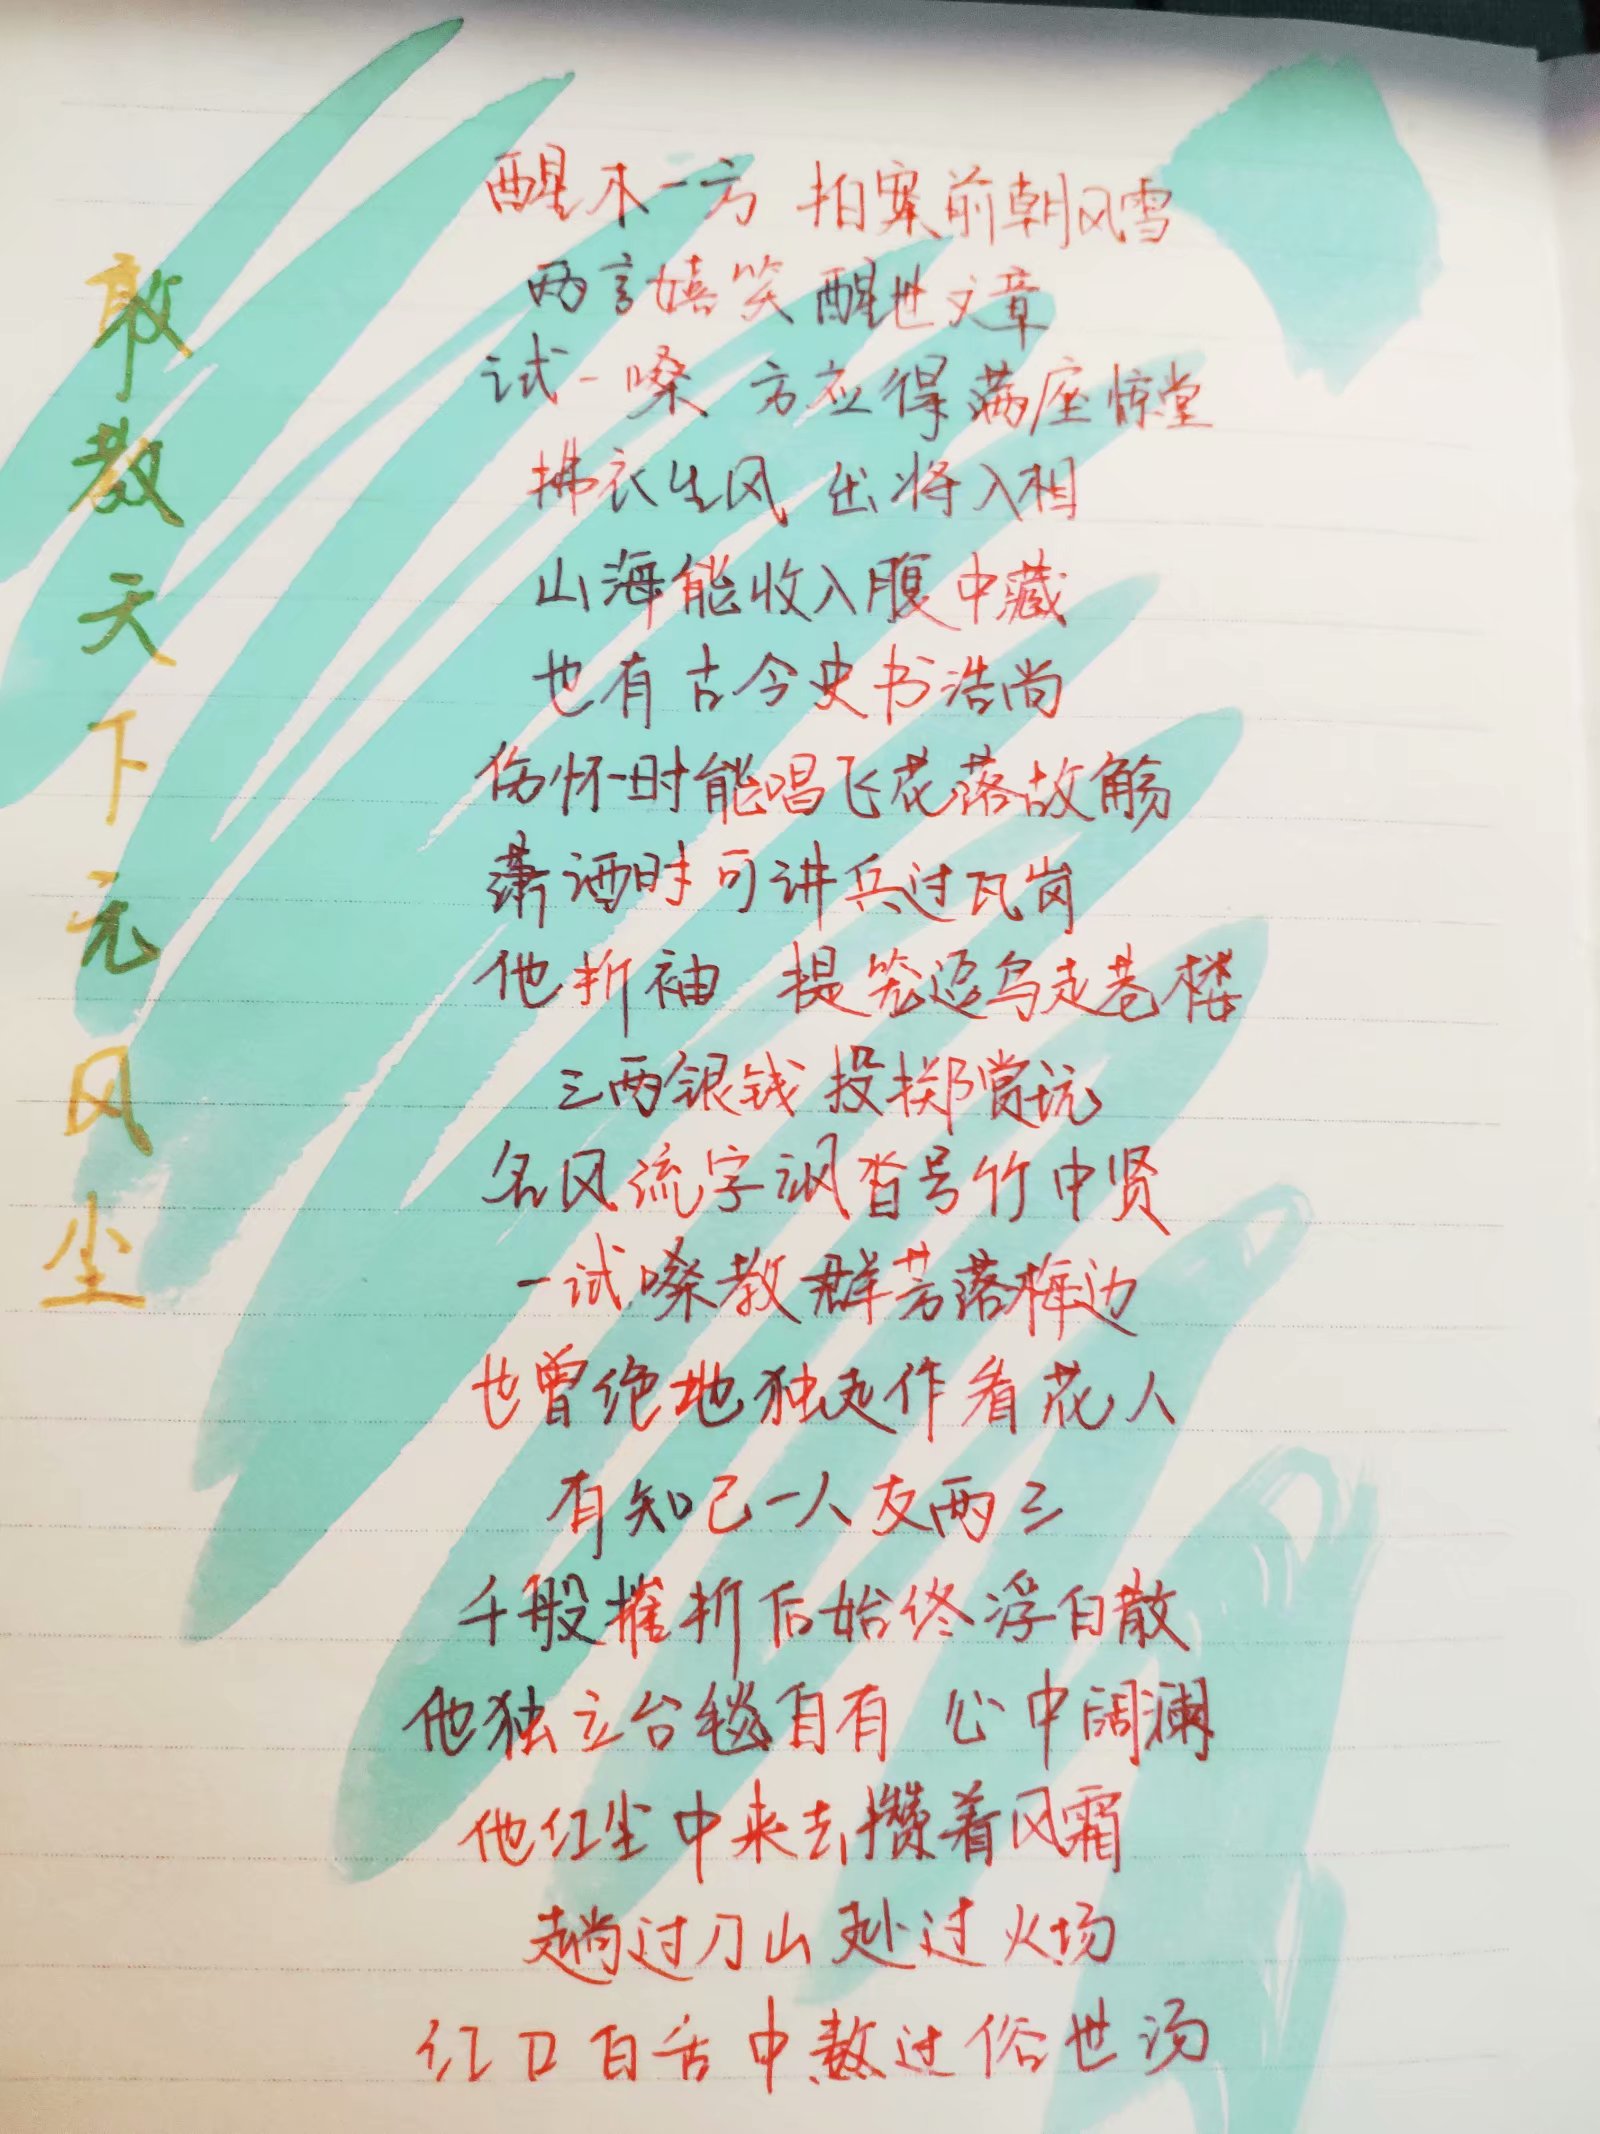 敢教天下无风尘
醒木一方 拍案前朝风雪
两言嬉笑醒世文章
试一嗓 方应得满座惊堂
拂衣生风 出将入相
山海能收入腹中藏
也有古今史书浩尚
伤怀时能唱飞花落故觞
潇洒时可讲兵过瓦岗
他折袖 提笼逗鸟走巷楼
三两银钱投掷赏玩
名风流字讽沓号竹中贤
一试嗓教群芳落梅边
也曾绝地独起作看花人
有知己一人友两三
千般摧折后始终浮白散
他独立台毯自有 心中阔澜
他红尘中来去攒着风霜
趟过刀山赴过火场
红口白舌中熬过俗世汤